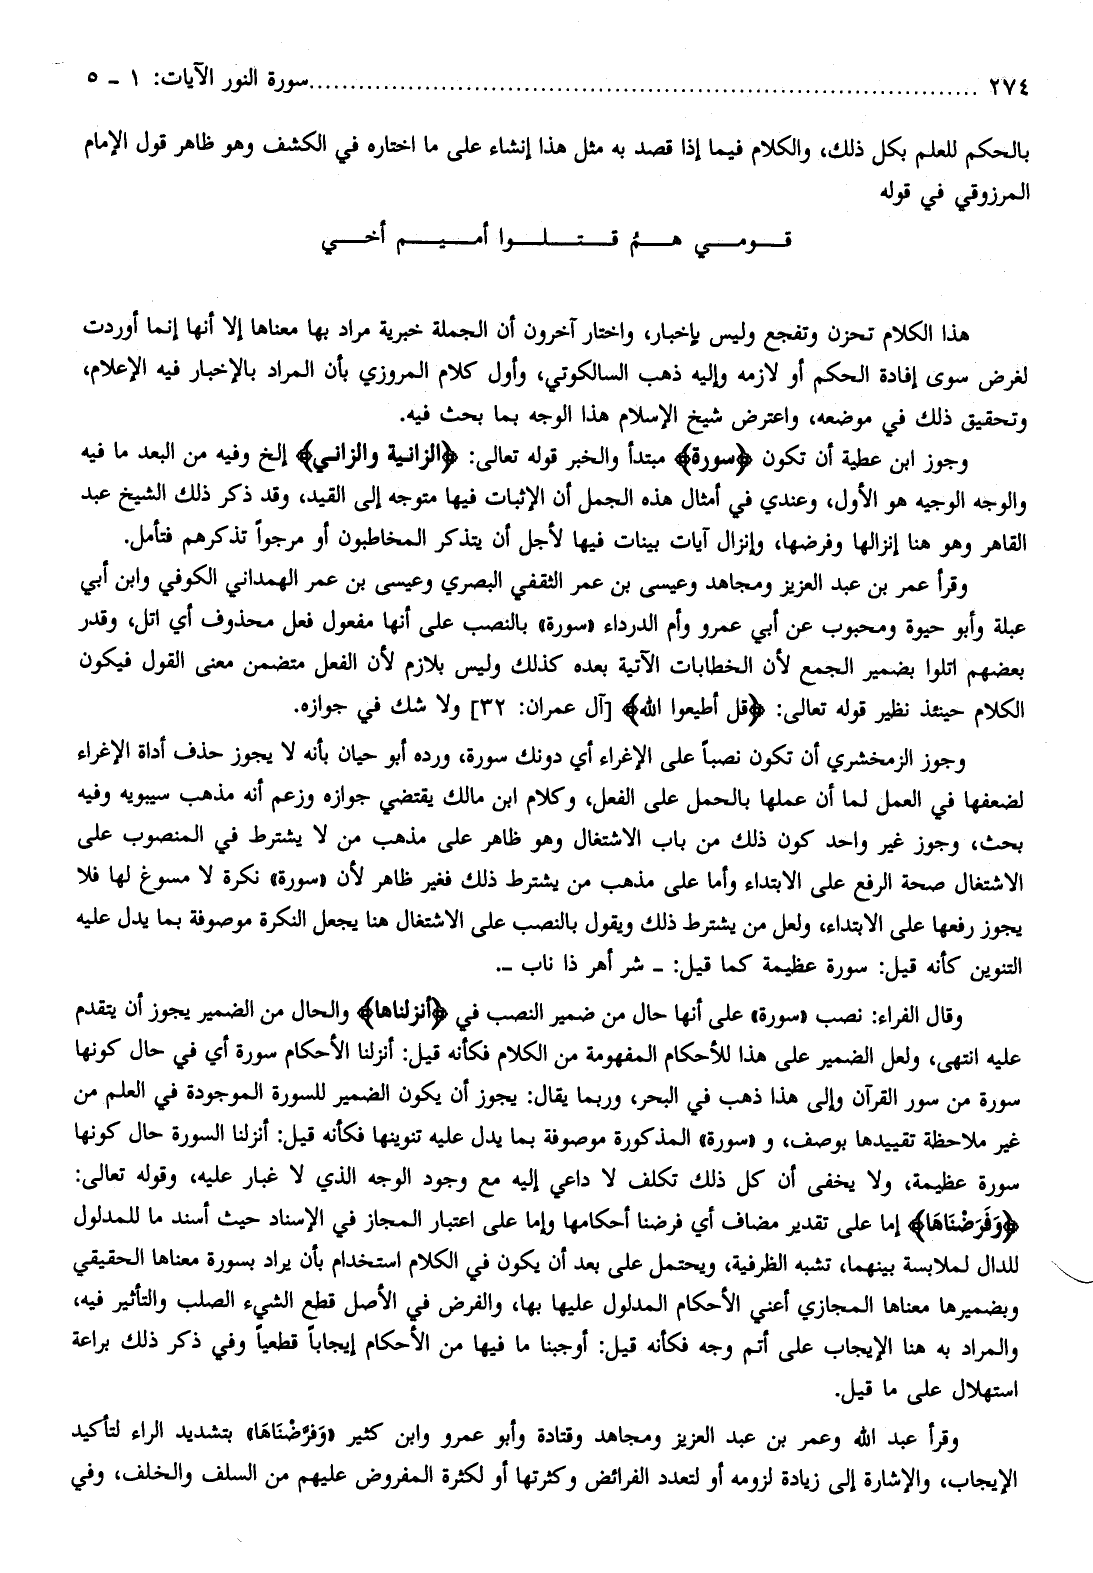 ٢٧٤ ............ سورة النور الآيات: ١ ـ ٥
بالحكم للعلم بكل ذلك، والكلام فيما إذا قصد به مثل هذا إنشاء على ما اختاره في الكشف وهو ظاهر قول الإمام
المرزوقي في قوله
قـومـي هـمُ قـتـلـوا أميـم أخـي
هذا الكلام تحزن وتفجع وليس بإخبار، واختار آخرون أن الجملة خبرية مراد بها معناها إلا أنها إنما أوردت
لغرض سوى إفادة الحكم أو لازمه وإليه ذهب السالكوتي، وأول كلام المروزي بأن المراد بالإخبار فيه الإعلام،
وتحقيق ذلك في موضعه، واعترض شيخ الإسلام هذا الوجه بما بحث فيه.
وجوز ابن عطية أن تكون ﴿سورة﴾ مبتدأ والخبر قوله تعالى: ﴿الزانية والزاني﴾ إلخ وفيه من البعد ما فيه
والوجه الوجيه هو الأول، وعندي في أمثال هذه الجمل أن الإثبات فيها متوجه إلى القيد، وقد ذكر ذلك الشيخ عبد
القاهر وهو هنا إنزالها وفرضها، وإنزال آيات بينات فيها لأجل أن يتذكر المخاطبون أو مرجواً تذكرهم فتأمل.
وقرأ عمر بن عبد العزيز ومجاهد وعيسى بن عمر الثقفي البصري وعيسى بن عمر الهمداني الكوفي وابن أبي
عبلة وأبو حيوة ومحبوب عن أبي عمرو وأم الدرداء «سورة» بالنصب على أنها مفعول فعل محذوف أي اتل، وقدر
بعضهم اتلوا بضمير الجمع لأن الخطابات الآتية بعده كذلك وليس بلازم لأن الفعل متضمن معنى القول فيكون
الكلام حينئذ نظير قوله تعالى: ﴿قل أطيعوا الله﴾ [آل عمران: ٣٢] ولا شك في جوازه.
وجوز الزمخشري أن تكون نصباً على الإغراء أي دونك سورة، ورده أبو حيان بأنه لا يجوز حذف أداة الإغراء
لضعفها في العمل لما أن عملها بالحمل على الفعل، وكلام ابن مالك يقتضي جوازه وزعم أنه مذهب سيبويه وفيه
بحث، وجوز غير واحد كون ذلك من باب الاشتغال وهو ظاهر على مذهب من لا يشترط في المنصوب على
الاشتغال صحة الرفع على الابتداء وأما على مذهب من يشترط ذلك فغير ظاهر لأن «سورة» نكرة لا مسوغ لها فلا
يجوز رفعها على الابتداء، ولعل من يشترط ذلك ويقول بالنصب على الاشتغال هنا يجعل النكرة موصوفة بما يدل عليه
التنوين كأنه قيل: سورة عظيمة كما قيل: ـ شر أهر ذا ناب ـ.
وقال الفراء: نصب «سورة» على أنها حال من ضمير النصب في ﴿أنزلناها﴾ والحال من الضمير يجوز أن يتقدم
عليه انتهى، ولعل الضمير على هذا للأحكام المفهومة من الكلام فكأنه قيل: أنزلنا الأحكام سورة أي في حال كونها
سورة من سور القرآن وإلى هذا ذهب في البحر، وربما يقال: يجوز أن يكون الضمير للسورة الموجودة في العلم من
غير ملاحظة تقييدها بوصف، و «سورة» المذكورة موصوفة بما يدل عليه تنوينها فكأنه قيل: أنزلنا السورة حال كونها
سورة عظيمة، ولا يخفى أن كل ذلك تكلف لا داعي إليه مع وجود الوجه الذي لا غبار عليه، وقوله تعالى:
﴿وَفَرَضْنَاهَا﴾ إما على تقدير مضاف أي فرضنا أحكامها وإما على اعتبار المجاز في الإسناد حيث أسند ما للمدلول
للدال لملابسة بينهما، تشبه الظرفية، ويحتمل على بعد أن يكون في الكلام استخدام بأن يراد بسورة معناها الحقيقي
وبضميرها معناها المجازي أعني الأحكام المدلول عليها بها، والفرض في الأصل قطع الشيء الصلب والتأثير فيه،
والمراد به هنا الإيجاب على أتم وجه فكأنه قيل: أوجبنا ما فيها من الأحكام إيجاباً قطعياً وفي ذكر ذلك براعة
استهلال على ما قيل.
وقرأ عبد الله وعمر بن عبد العزيز ومجاهد وقتادة وأبو عمرو وابن كثير «وَفرَّضْنَاهَا» بتشديد الراء لتأكيد
الإيجاب، والإشارة إلى زيادة لزومه أو لتعدد الفرائض وكثرتها أو لكثرة المفروض عليهم من السلف والخلف، وفي